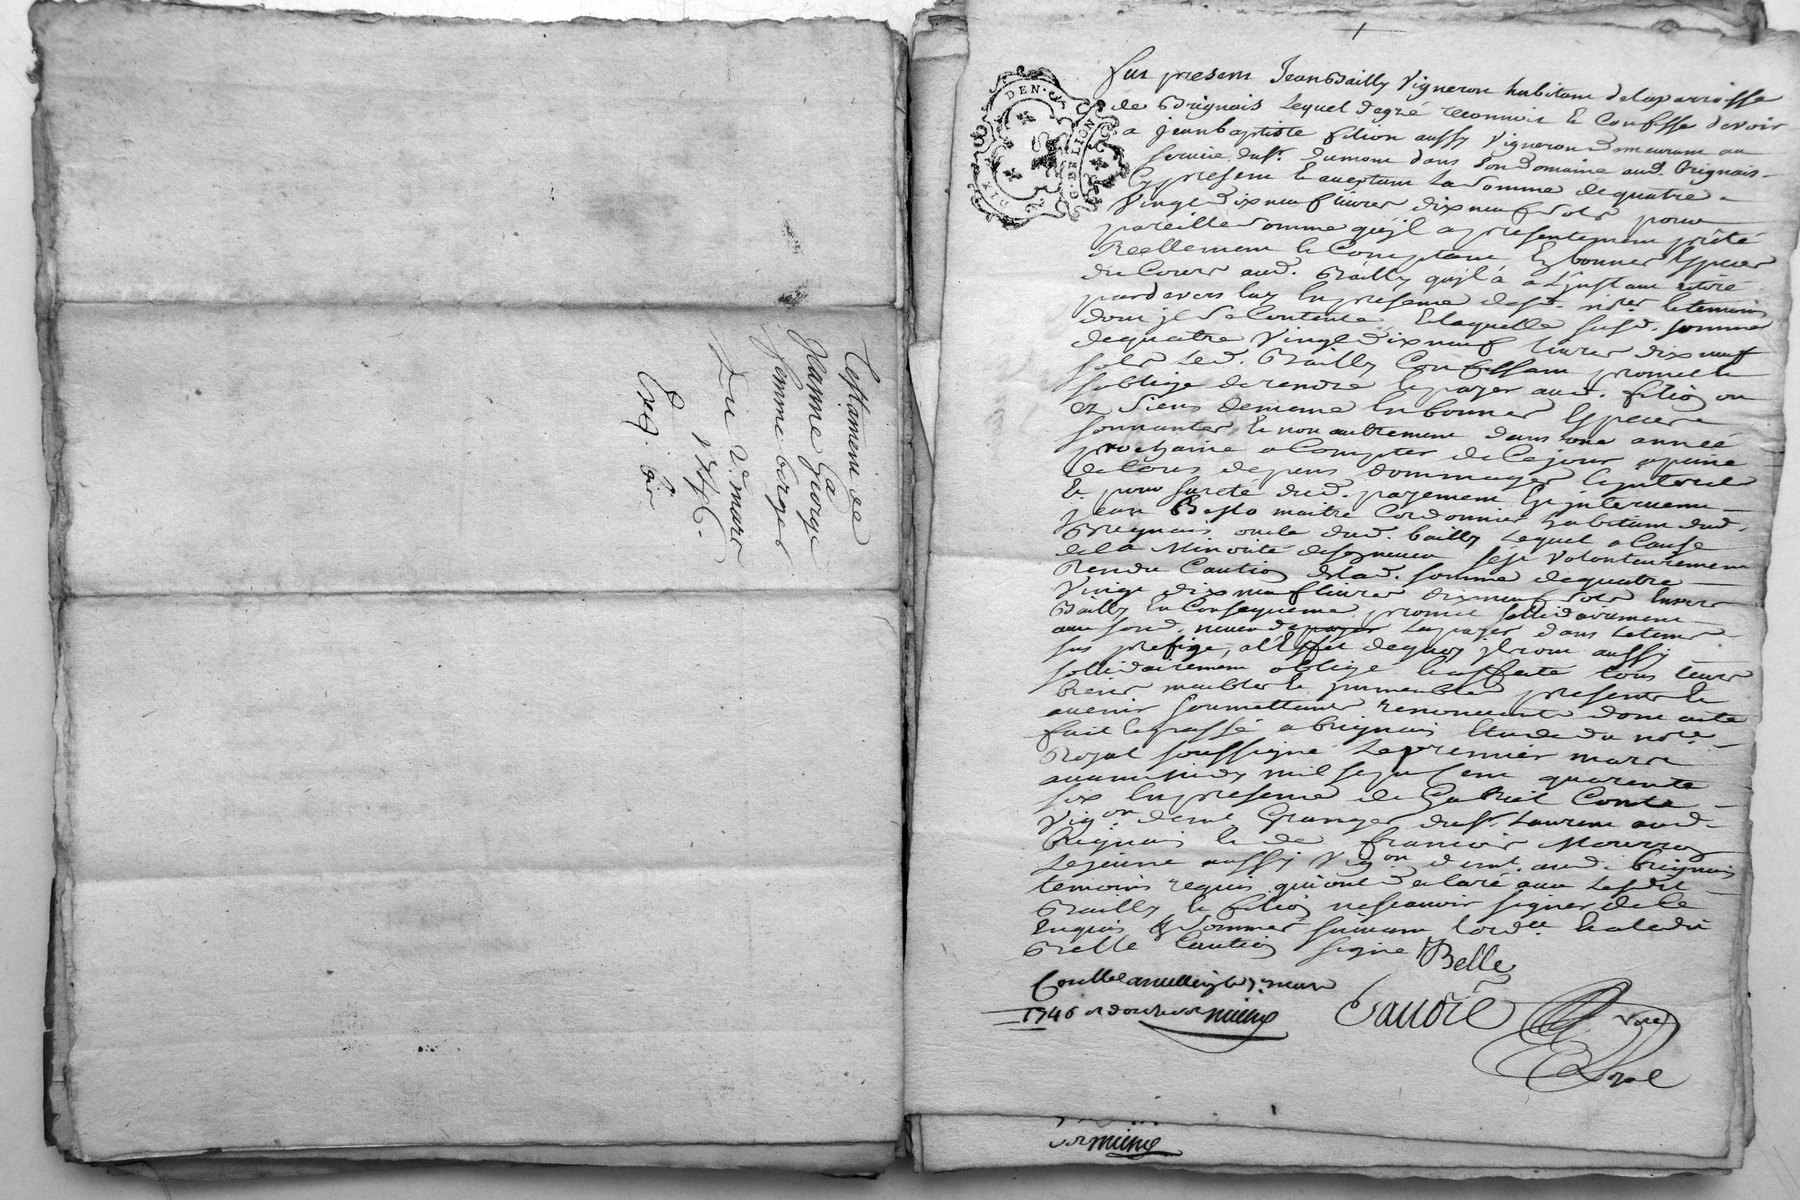 Testament de
Jeanne George
femme
Du 2e mars
1746.
DIX DEN.
G. DE LION
Fut present Jean Bailly Vigneron habitant delaparroisse
de Brignais Lequel degré reconnoit et Confesse devoir
a jean baptiste filion aussy Vigneron demeurant au
service du sr. dumont dans son domaine aud. brignais
Cy present et aceptant La Somme de quatre
Vingt dix neuf livres dix neuf sols pour
pareille somme qu'jl a presentement prêté
Réellement et Comptant En bonnes Especes
du Cours aud. Bailly qu'jl à a L'jnstant retiré
pardevers luy En presence desd. nore. et temoins
dont jl se Contente, Et laquelle susd. somme
dequatre Vingt dix neuf livres dix neuf
sols Led. Bailly Confessant promet et
soblige de rendre et payer aud. filion ou
ez siens de meme En bonnes Especes
sonnantes et non autrement dans une année
prochaine a Compter de Ce jour a peine
de tous depens dommages et jnterets
Et pour sureté dud. payement Est jntervenu
jean Belle maitre Cordonnier habitant dud.
Brignais oncle dud. bailly Lequel a Cause
de la Minorité de son neveu sest volontairement
Rendu Caution de lad. somme dequatre
Vingt dix neuf livres dix neuf sols Envers
Bailly En Consequence promet sollidairement
avec sond. neveu de payer La payer dans Le terme
sus prefigé, a l'Effet de quoy jls ont aussy
sollidairement obligé et affecté tous leurs
biens meubles et jmmeubles presents et
avenir soumettants renonceants dont acte
fait et passé a brignais Etude du nore.
Royal soussigné Le premier mars
avant midy mil sept Cent quarente
six En presence de Gabriel Comte
Vigon demt. Granger du sr. Laurent aud.
brignais et de francois Mourron
Lejeune aussy Vigon demt. aud. brignais
temoins requis qui ont declaré avec Lesdit
Bailly et filion ne scavoir signer de ce
Enquis & sommés suivant l'ordce. et aledit
Belle Caution signé
Belle
1746
Nore
Royal